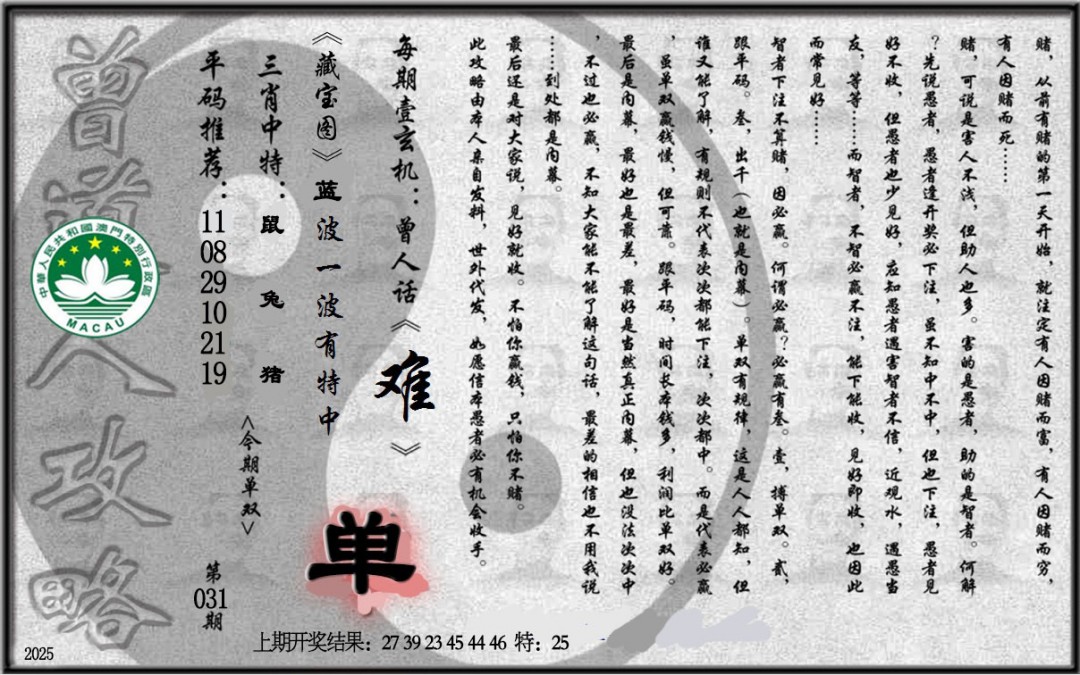 赌，从前有赌的第一天开始，就注定有人因赌而富，有人因赌而穷，
有人因赌而死……
赌，可说是害人不浅，但助人也多。害的是愚者，助的是智者。何解
？先说愚者，愚者逢开奖必下注，虽不知中不中，但也下注，愚者见
好不收，但愚者也少见好，应知愚者遇害智者不信，近观水，遇愚当
友，等等……而智者，不智必赢不注，能下能收，见好即收，也因此
而常见好……
智者下注不算赌，因必赢。何谓必赢？必赢有叁。壹，搏单双。贰，
跟平码。叁，出千（也就是内幕）。单双有规律，这是人人都知，但
谁又能了解，有规则不代表次次都能下注，次次都中。而是代表必赢
，虽单双赢钱慢，但可靠。跟平码，时间长本钱多，利润比单双好。
最后是内幕，最好也是最差，最好是当然真正内幕，但也没法次次中
，不过也必赢，不知大家能不能了解这句话，最差的相信也不用我说
……到处都是内幕。
最后还是对大家说，见好就收。不怕你赢钱，只怕你不赌。
此攻略由本人亲自发料，世外代发，如愿信本愚者必有机会收手。
每期壹玄机：曾人话《难》
《藏宝图》蓝波一波有特中
三肖中特：鼠 兔 猪
平码推荐：11 08 29 10 21 19
<今期单双>
单
第031期
曾道人攻略
中華人民共和國澳門特別行政區
MACAU
上期开奖结果：27 39 23 45 44 46 特：25
2025